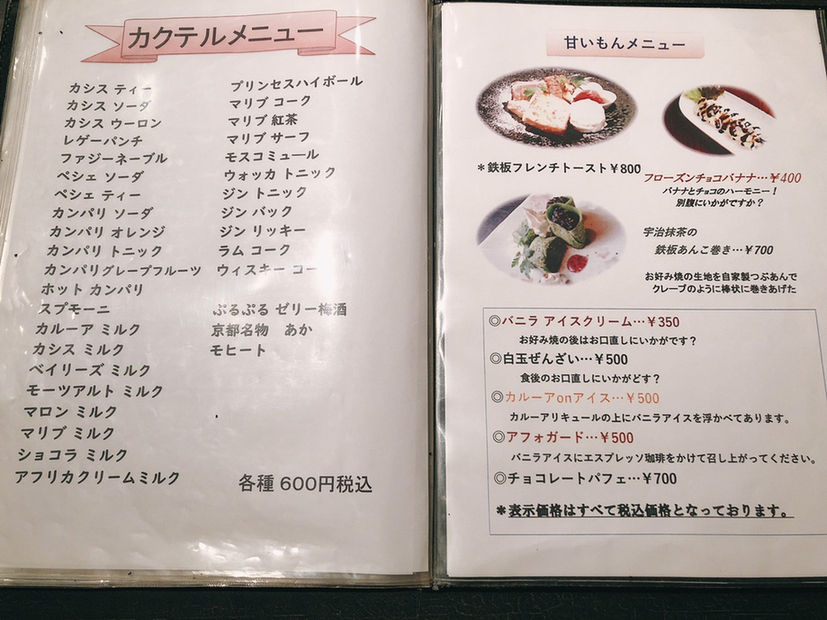 カクテルメニュー
カシス ティー
カシス ソーダ
カシス ウーロン
レゲーパンチ
ファジーネーブル
ペシェ ソーダ
ペシェ ティー
カンパリ ソーダ
カンパリ オレンジ
カンパリ トニック
カンパリグレープフルーツ
ホット カンパリ
スプモーニ
カルーア ミルク
カシス ミルク
ベイリーズ ミルク
モーツアルト ミルク
マロン ミルク
マリブ ミルク
ショコラ ミルク
アフリカクリームミルク
プリンセスハイボール
マリブ コーク
マリブ 紅茶
マリブ サーフ
モスコミュール
ウォッカ トニック
ジン トニック
ジン バック
ジン リッキー
ラム コーク
ウィスキー コー
ぷるぷる ゼリー梅酒
京都名物 あか
モヒート
各種 600円税込
甘いもんメニュー
*鉄板フレンチトースト¥800
フローズンチョコバナナ…¥400
バナナとチョコのハーモニー!
別腹にいかがですか?
宇治抹茶の
鉄板あんこ巻き…¥700
お好み焼の生地を自家製つぶあんで
クレープのように棒状に巻きあげた
◎バニラ アイスクリーム…¥350
お好み焼の後はお口直しにいかがです?
◎白玉ぜんざい…¥500
食後のお口直しにいかがどす?
◎カルーアonアイス…¥500
カルーアリキュールの上にバニラアイスを浮かべてあります。
◎アフォガード…¥500
バニラアイスにエスプレッソ珈琲をかけて召し上がってください。
◎チョコレートパフェ…¥700
*表示価格はすべて税込価格となっております。